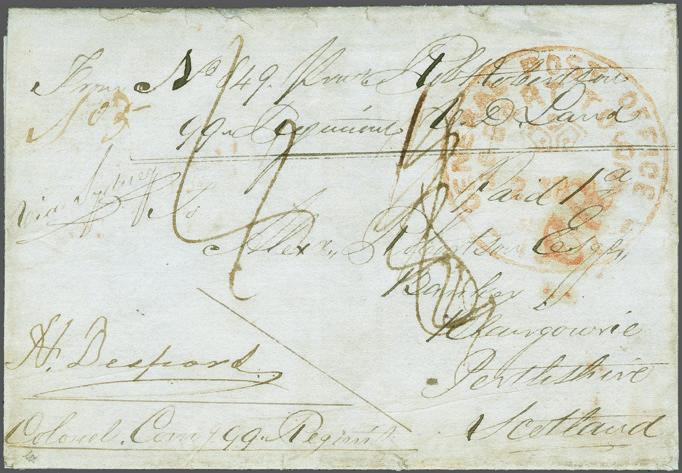 From No 849. Privt Robertson
No 5
99th Regiment V. D. Land
via Sydney
To
Paid 1d
Alexr. Robertson Esqr,
Banker
Blairgowrie
Perthshire
Scotland
H. Despard
Colonel. Comg 99th Regimt
GENERAL POST OFFICE